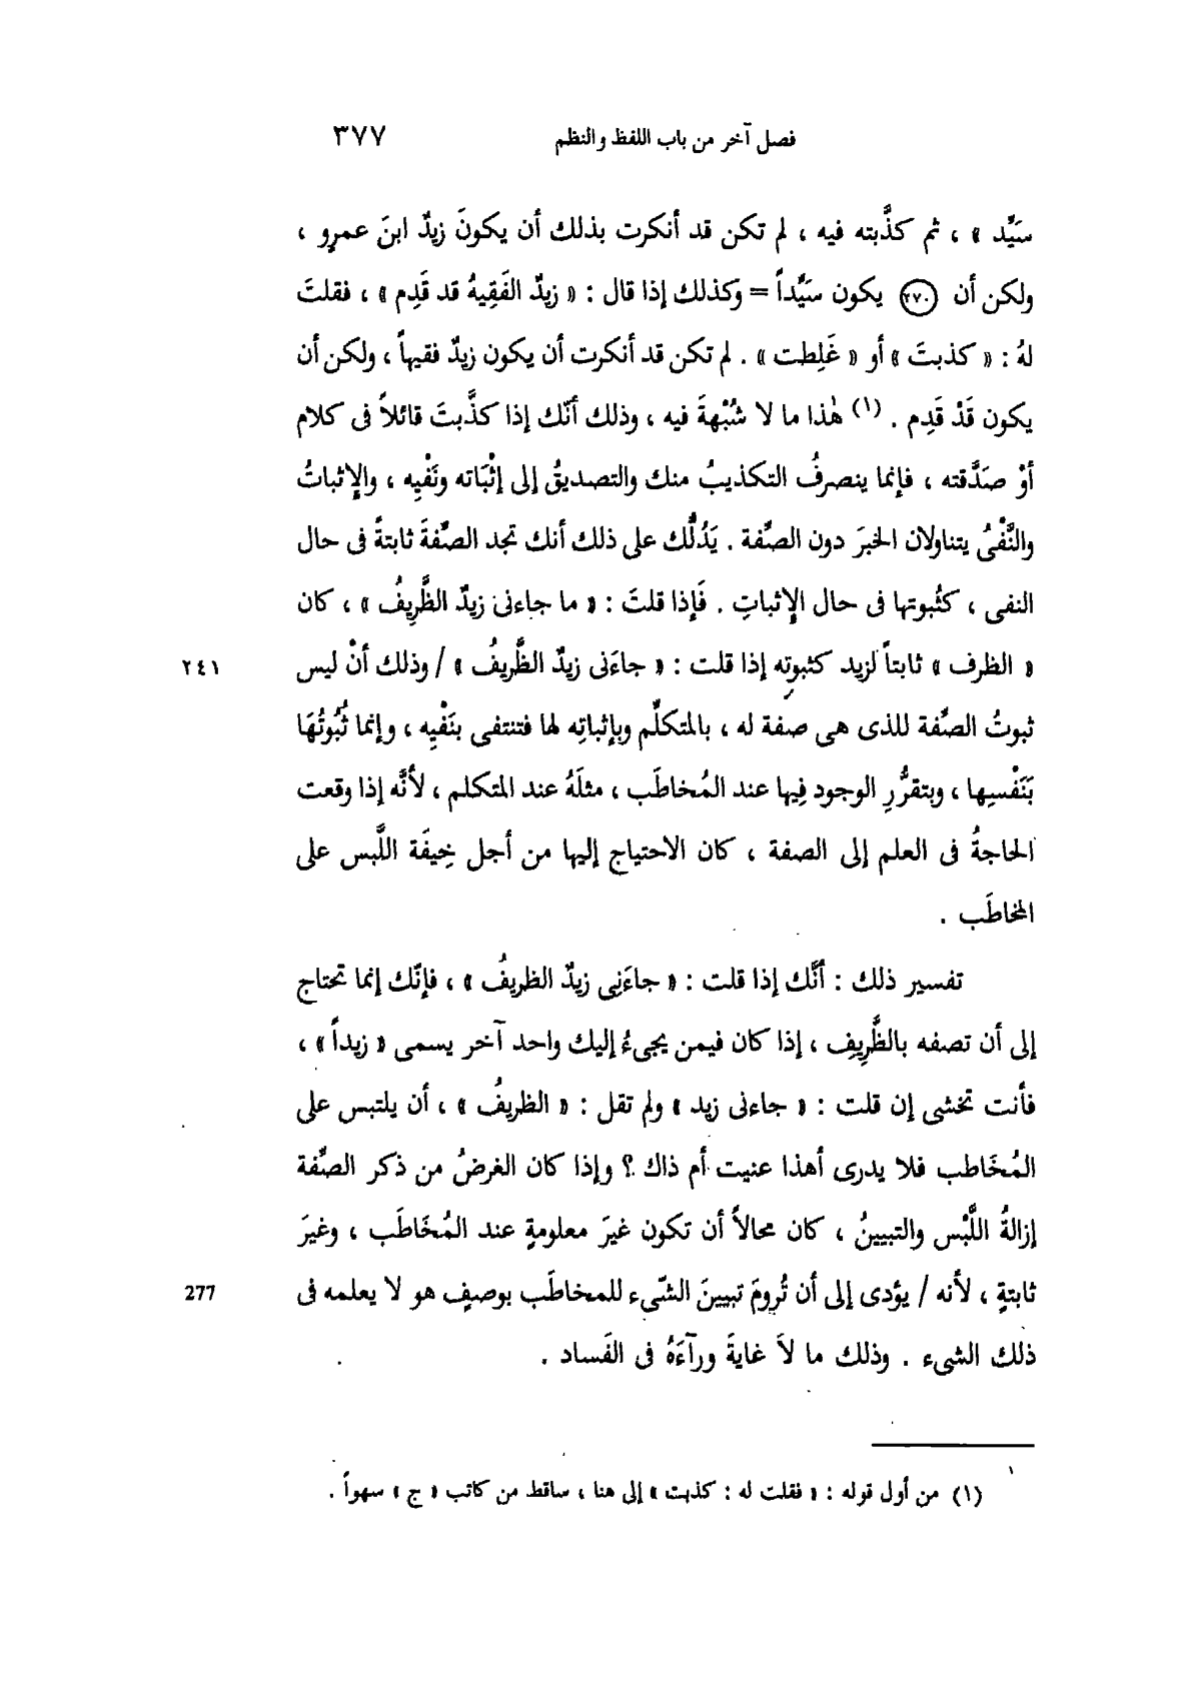 فصل آخر من باب اللفظ والنظم ٣٧٧
سَيِّد » ، ثم كذَّبته فيه ، لم تكن قد أنكرت بذلك أن يكونَ زيدٌ ابنَ عمرٍو ،
ولكن أن ٢٧٠ يكون سَيِّداً = وكذلك إذا قال : « زيدٌ الفَقِيهُ قد قَدِم » ، فقلتَ
لهُ : « كذبتَ » أو « غَلِطت » . لم تكن قد أنكرت أن يكون زيدٌ فقيهاً ، ولكن أن
يكون قَدْ قَدِم . (١) هٰذا ما لا شُبْهةَ فيه ، وذلك أنّك إذا كذَّبتَ قائلاً فى كلام
أوْ صَدَّقته ، فإنما ينصرفُ التكذيبُ منك والتصديقُ إلى إثْبَاته ونَفْيِه ، والإثباتُ
والنَّفْىُ يتناولان الخبرَ دون الصِّفة . يَدُلُّك على ذلك أنك تجد الصِّفةَ ثابتةً فى حال
النفى ، كثُبوتها فى حال الإثباتِ . فَإذا قلتَ : « ما جاءنى زيدٌ الظَّرِيفُ » ، كان
« الظرف » ثابتاً لزيد كثبوتِه إذا قلت : « جاءَنى زيدٌ الظَّريفُ » / وذلك أنْ ليس ٢٤١
ثبوتُ الصِّفة للذى هى صفة له ، بالمتكلِّم وبإثباتِه لها فتنتفى بنَفْيِه ، وإنما ثُبُوتُهَا
بَنَفْسِها ، وبتقرُّرِ الوجود فِيها عند المُخاطَب ، مثلَهُ عند المتكلم ، لأنَّه إذا وقعت
الحاجةُ فى العلم إلى الصفة ، كان الاحتياج إليها من أجل خِيفَة اللَّبس على
المخاطَب .
تفسير ذلك : أنَّك إذا قلت : « جاءَنِى زيدٌ الظريفُ » ، فإنّك إنما تحتاج
إلى أن تصفه بالظَّرِيفِ ، إذا كان فيمن يجىءُ إليك واحد آخر يسمى « زيداً » ،
فأنت تخشى إن قلت : « جاءنى زيد » ولم تقل : « الظريفُ » ، أن يلتبس على
المُخَاطب فلا يدرى أهذا عنيت أم ذاك ؟ وإذا كان الغرضُ من ذكر الصِّفة
إزالةُ اللَّبْس والتبيينُ ، كان محالاً أن تكون غيرَ معلومةٍ عند المُخَاطَب ، وغيرَ
ثابتةٍ ، لأنه / يؤدى إلى أن تُرومَ تبيينَ الشّىء للمخاطَب بوصفٍ هو لا يعلمه فى 277
ذلك الشىء . وذلك ما لاَ غايةَ ورآءَهُ فى الفَساد .
(١) من أول قوله : « فقلت له : كذبت » إلى هنا ، ساقط من كاتب « ج » سهواً .